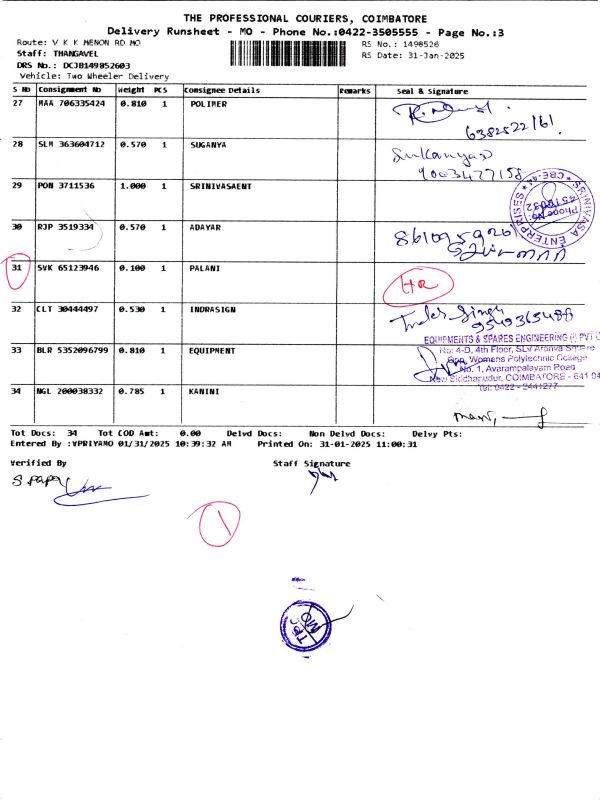 THE PROFESSIONAL COURIERS, COIMBATORE
Delivery Runsheet - MO - Phone No.:0422-3505555 - Page No.:3
Route: V K K MENON RD MO
RS No.: 1498526
Staff: THANGAVEL
RS Date: 31-Jan-2025
DRS No.: DCJB149852603
Vehicle: Two Wheeler Delivery
S No Consignment No Weight PCS Consignee Details Remarks Seal & Signature
27 MAA 706335424 0.810 1 POLIMER
6382522161
28 SLM 363604712 0.570 1 SUGANYA
Sukanya
9003477158
29 PON 3711536 1.000 1 SRINIVASAENT
SRINIVASA ENTERPRISES
CBE-
Phone No:
30 RJP 3519334 0.570 1 ADAYAR
31 SVK 65123946 0.100 1 PALANI
32 CLT 30444497 0.530 1 INDRASIGN
Singh
9549365488
EQUIPMENTS & SPARES ENGINEERING (I) PVT
33 BLR 5352096799 0.810 1 EQUIPMENT
No: 4-D, 4th Floor, SLV
Opp. Womens Polytechnic College
No. 1, Avarampalayam Road
New Siddhapudur, COIMBATORE - 641 04
Tel: 0422 - 2441277
34 NGL 200038332 0.785 1 KANINI
Tot Docs: 34 Tot COD Amt: 0.00 Delvd Docs: Non Delvd Docs: Delvy Pts:
Entered By :VPRIYAMO 01/31/2025 10:39:32 AM Printed On: 31-01-2025 11:00:31
Verified By Staff Signature
1